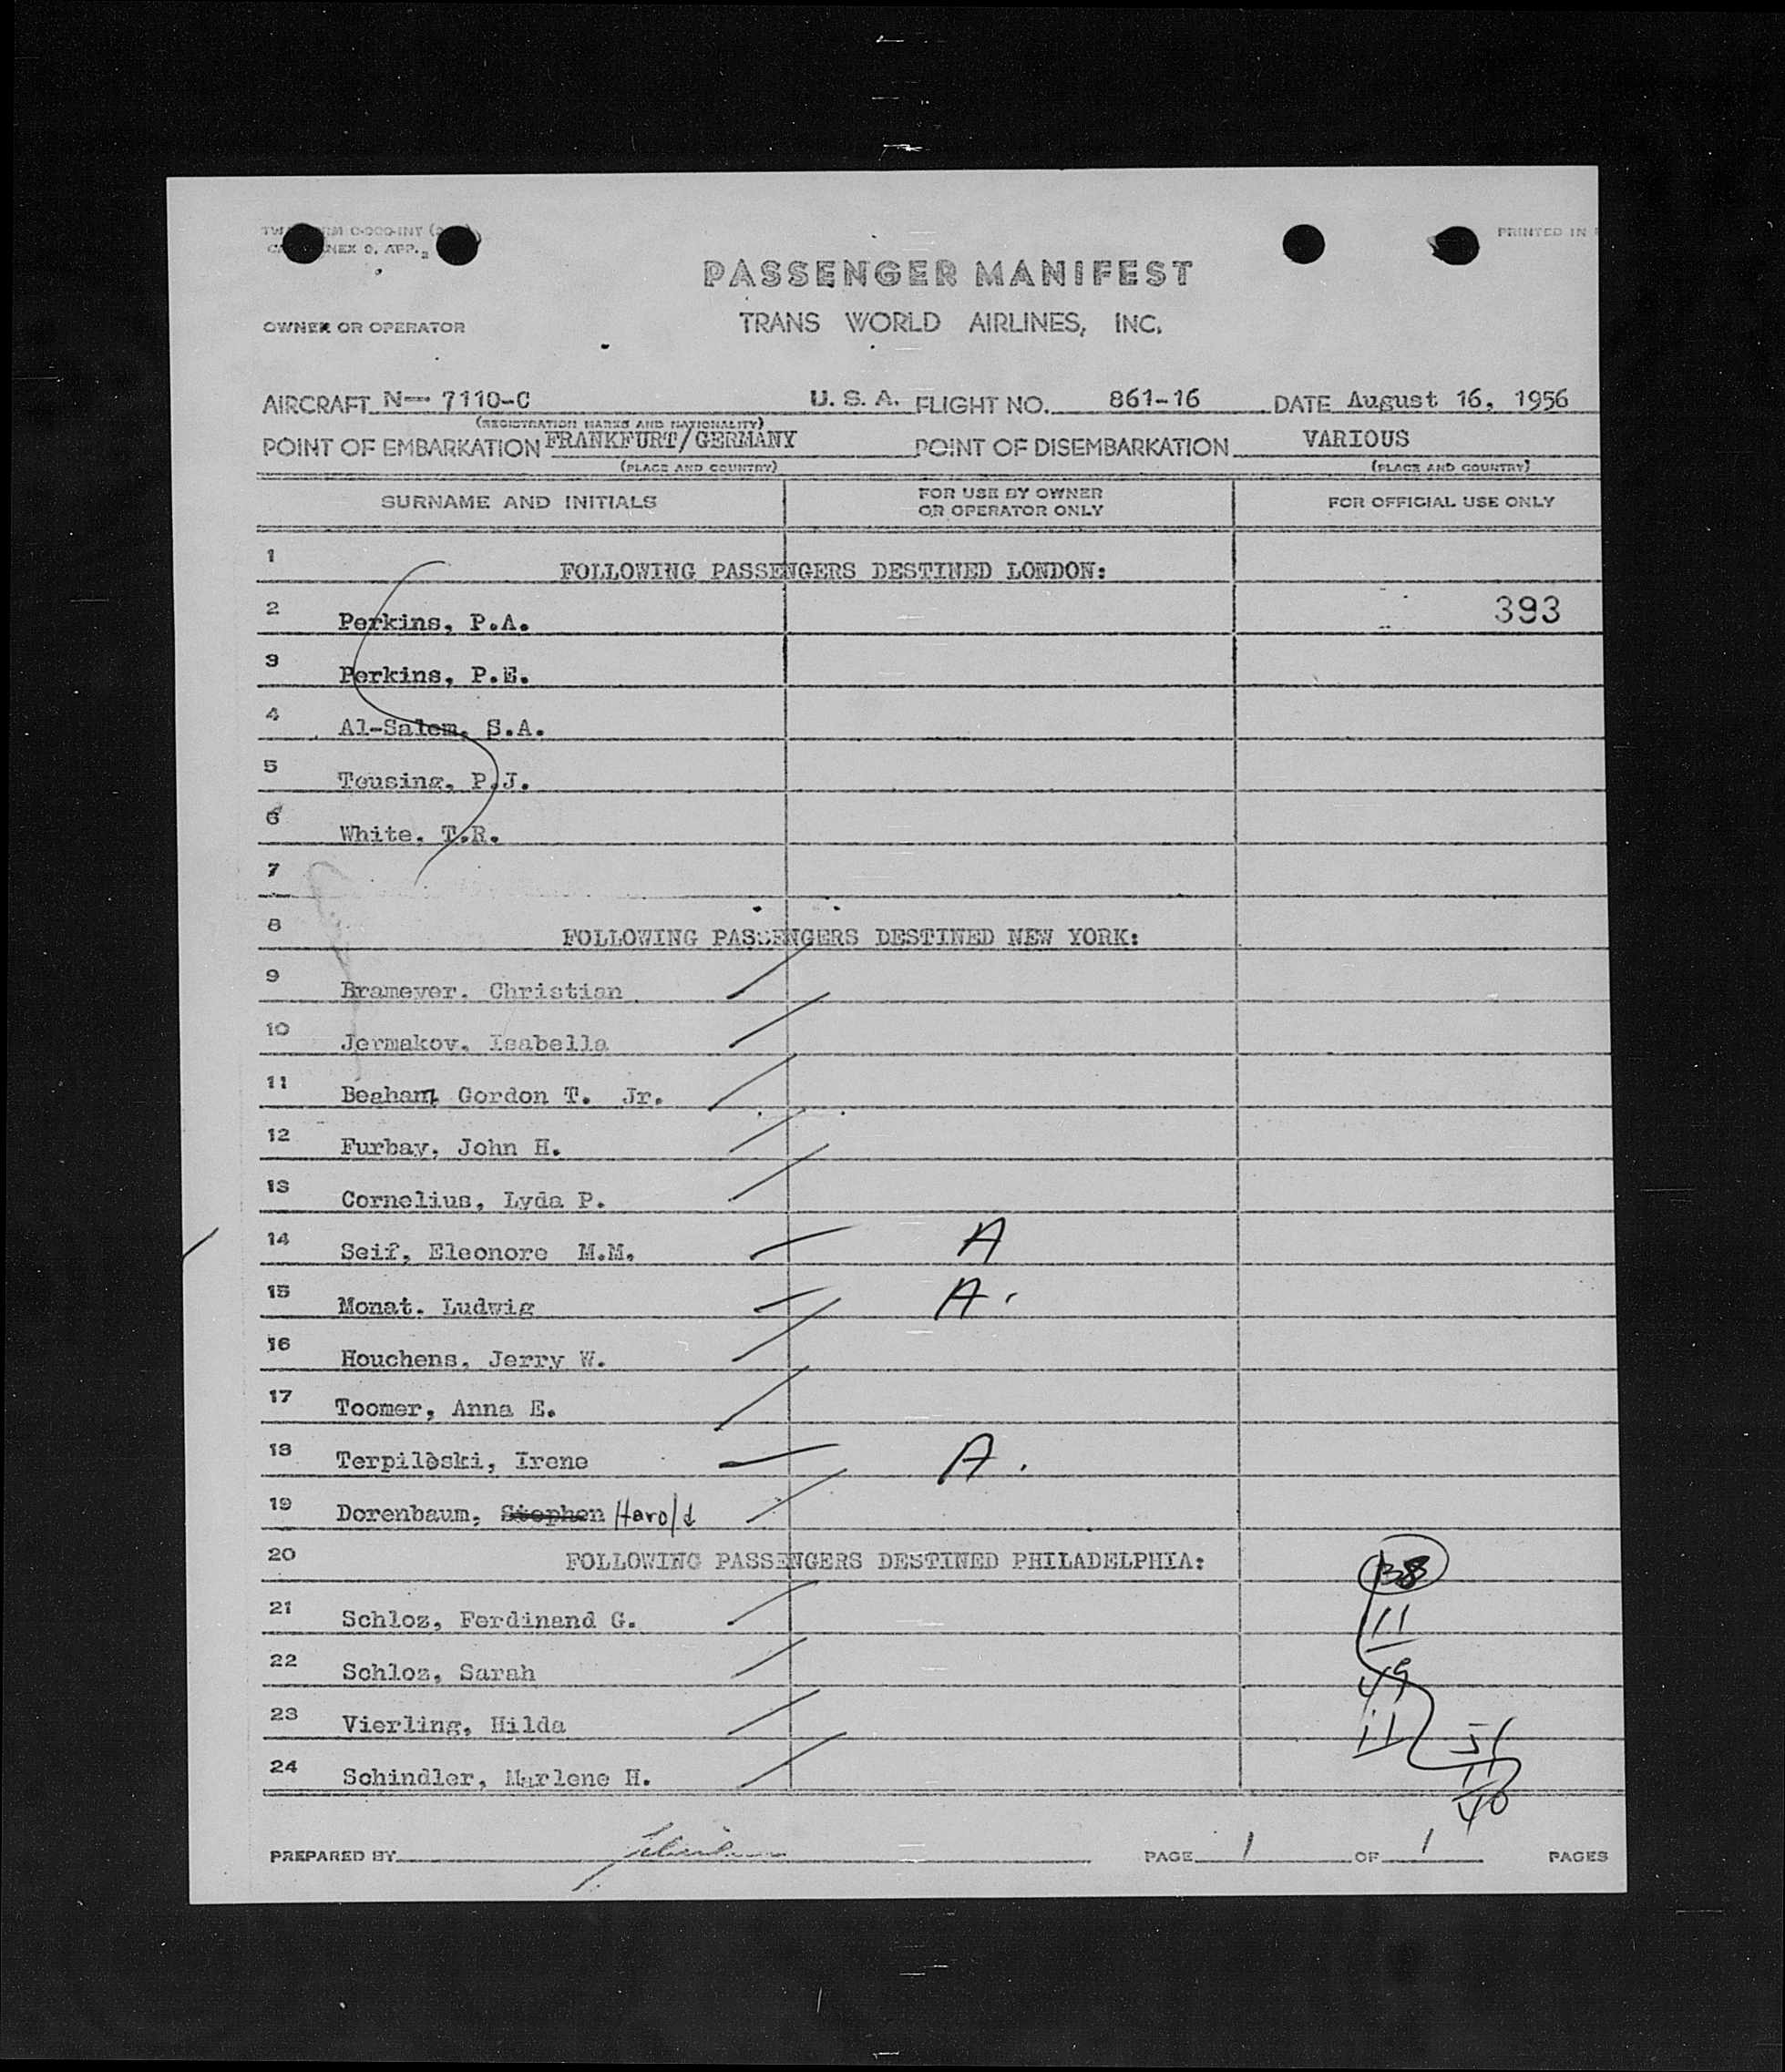 PRINTED IN
PASSENGER MANIFEST
OWNER OR OPERATOR TRANS WORLD AIRLINES, INC.
AIRCRAFT N-- 7110-C U. S. A. FLIGHT NO. 861-16 DATE August 16, 1956
(REGISTRATION MARKS AND NATIONALITY)
POINT OF EMBARKATION FRANKFURT/GERMANY POINT OF DISEMBARKATION VARIOUS
(PLACE AND COUNTRY) (PLACE AND COUNTRY)
SURNAME AND INITIALS FOR USE BY OWNER OR OPERATOR ONLY FOR OFFICIAL USE ONLY
1 FOLLOWING PASSENGERS DESTINED LONDON:
2 Perkins, P.A. 393
3 Perkins, P.E.
4 Al-Salem, S.A.
5 Tousing, P.J.
6 White, T.R.
7
8 FOLLOWING PASSENGERS DESTINED NEW YORK:
9 Brameyer, Christian
10 Jermakov, Isabella
11 Beaham, Gordon T. Jr.
12 Furbay, John H.
13 Cornelius, Lyda P.
14 Seif, Eleonore M.M. A
15 Monat, Ludwig A.
16 Houchens, Jerry W.
17 Toomer, Anna E.
18 Terpiloski, Irene A.
19 Dorenbaum, Stephen Harold
20 FOLLOWING PASSENGERS DESTINED PHILADELPHIA:
38
21 Schloz, Ferdinand G. 11
22 Schloz, Sarah 49
23 Vierling, Hilda 11 51
24 Schindler, Marlene H. 11
40
PREPARED BY PAGE 1 OF 1 PAGES